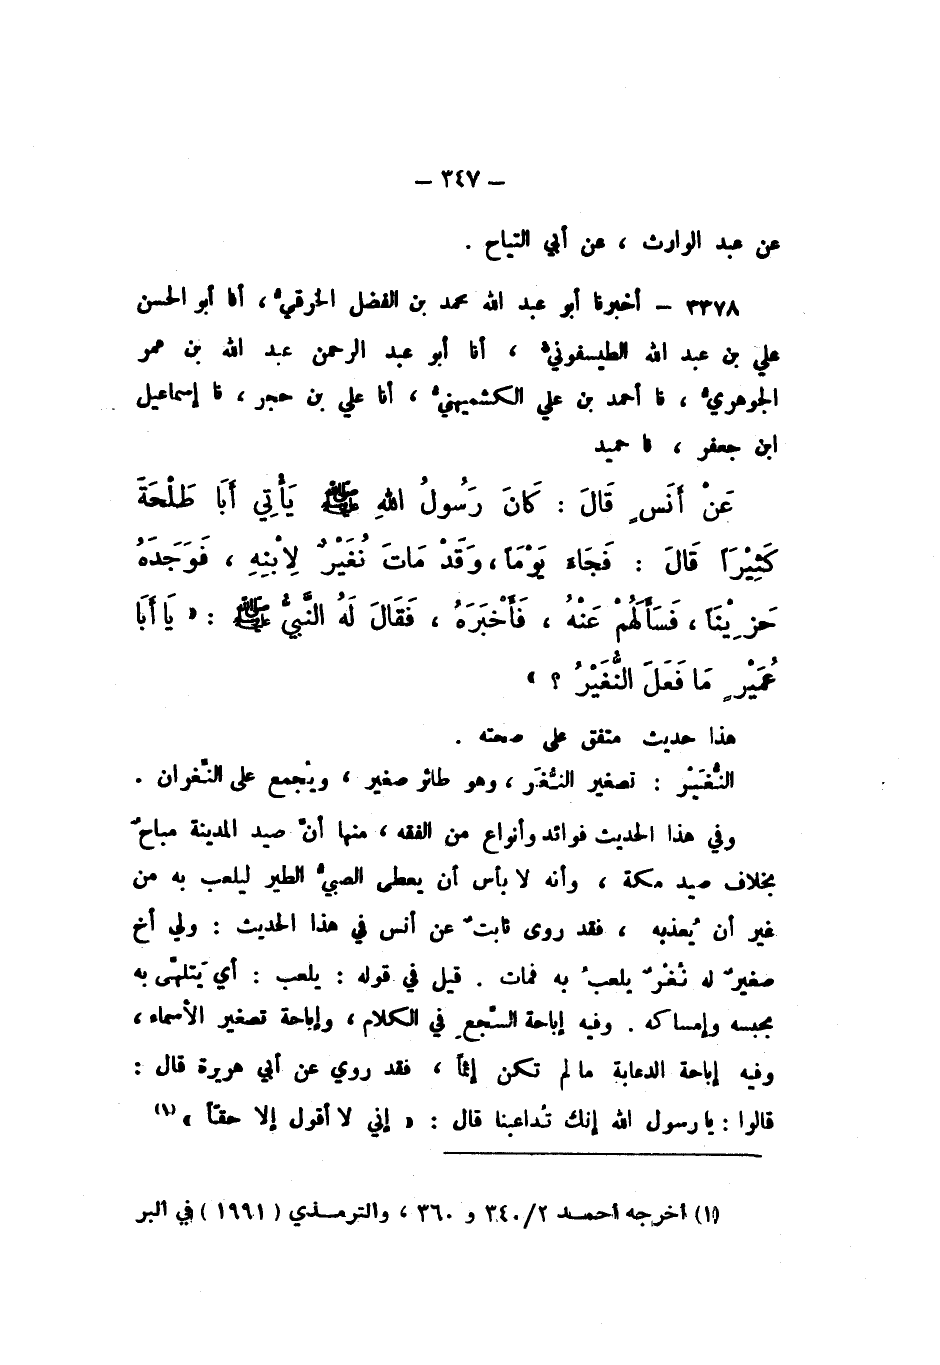 – ٣٤٧ –
عن عبد الوارث ، عن أبي التياح .
٣٣٧٨ – أخبرنا أبو عبد الله محمد بن الفضل الخرقيُّ ، أنا أبو الحسن
علي بن عبد الله الطيسفونيُّ ، أنا أبو عبد الرحمن عبد الله بن عمر
الجوهريُّ ، نا أحمد بن علي الكشميهنيُّ ، أنا علي بن حجر ، نا إسماعيل
ابن جعفر ، نا حميد
عَنْ أَنَسٍ قَالَ : كَانَ رَسُولُ اللهِ ﷺ يَأْتِي أَبَا طَلْحَةَ
كَثِيْرَاً قَالَ : فَجَاءَ يَوْمَاً ، وَقَدْ مَاتَ نُغَيْرٌ لِابْنِهِ ، فَوَجَدَهُ
حَزِيْنَاً ، فَسَأَلَهُمْ عَنْهُ ، فَأَخْبَرَهُ ، فَقَالَ لَهُ النَّبِيُّ ﷺ : « يَا أَبَا
عُمَيْرٍ مَا فَعَلَ النُّغَيْرُ ؟ »
هذا حديث متفق على صحته .
النُّغَيْر : تصغير النُّغَر ، وهو طائر صغير ، ويُجمع على النِّغران .
وفي هذا الحديث فوائد وأنواع من الفقه ، منها أنَّ صيد المدينة مباحٌ
بخلاف صيد مكة ، وأنه لا بأس أن يعطى الصبيُّ الطير ليلعب به من
غير أن يُعذبه ، فقد روى ثابتٌ عن أنس في هذا الحديث : ولي أخ
صغيرٌ له نُغَرٌ يلعبُ به فمات . قيل في قوله : يلعب : أي يَتلهّى به
بحبسه وإمساكه . وفيه إباحة السَّجعِ في الكلام ، وإباحة تصغير الأسماء ،
وفيه إباحة الدعابة ما لم تكن إثماً ، فقد روي عن أبي هريرة قال :
قالوا : يا رسول الله إنك تُداعبنا قال : « إني لا أقول إلا حقّاً » (١)
(١) أخرجه أحمـد ٣٤٠/٢ و ٣٦٠ ، والترمـذي ( ١٩٩١ ) في البر